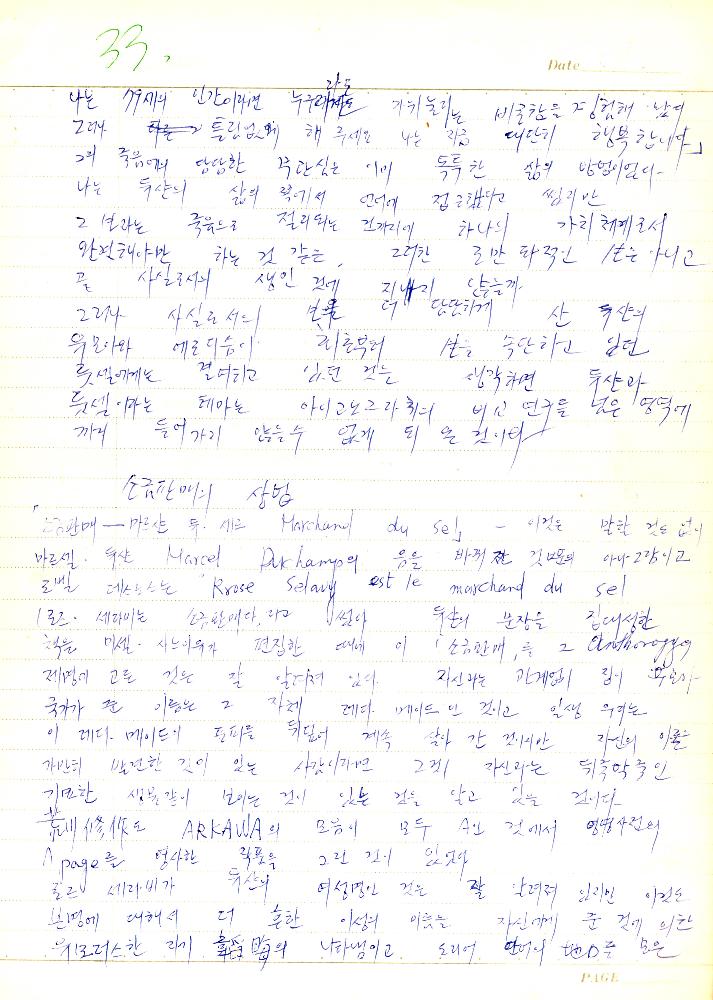 33.
Date
나는 79세의 인간이라면 누구라도 가위눌리는 비굴함을 경험해 났어
그러나 틀림없이 해 주세요 나는 지금 대단히 행복합니다」
그의 죽음에서 당당한 무관심은 이미 독특한 삶의 방법이었다.
나는 뒤샹의 삶의 쪽에서 언어에 접근했다고 썼지만
그 보다는 죽음으로 정리되는 하나의 가치체계로서
완성해야만 하는 것 같은, 그러한 로만 파적인 生은 아니고
끝 사실로서의 생인 것에 지나지 않을까
그러나 사실로서의 보를 더 당당하게 산 뒤샹의
유모아와 에로티슴이 최초부터 生을 속단하고 있던
룻셀에게는 결여되고 있던 것은 생각하면 뒤샹과
룻셀이라는 테마는 아이고노그라휘의 비교 연구를 넘은 영역에
까지 들어가지 않을수 없게 되 온 것이다
소금판매의 상법
「소금판매 — 마르샨 듀. 세르 Marchand du sel」 - 이것은 말할 것도 없이
마르셀. 뒤샹 Marcel Duchamp의 음을 바꿔 아나그람이고
로벨 데스노스는 Rrose Selavy est le marchand du sel
(로즈. 세라비는 소금판매다, 라고 썼다 뒤샹의 문장을 집대성한
책을 미셀. 사누이유가 편집한 때에 이 「소금판매」를 그 anthorogy의
제명에 고른 것은 잘 알려져 있다 자신과는 관계없이 림이
국가가 준 이름은 그 자체 레디. 메이드인 것이고 일생 우리는
이 레디. 메이드의 등피를 뒤집어 계속 살아 간 것이지만 자신의 이름을
가만히 발견한 것이 있는 사람이라면 그것이 자신과는
기묘한 생물같이 보이는 것이 있는 것을 알고 있을 것이다
荒川修作도 ARKAWA의 모음이 모두 A인 것에서 영영사전의
A page를 영사한 작품을 그린 것이 있었다
로즈 세라비가 뒤샹의 여성명인 것은 잘 알려져 있지만 이것도
본명에 대해서 더 흔한 이성의 이름을 자신에게 준 것에 의한
자기 의 나타냄이고 도리어 언어의 地口를 모은
PAGE